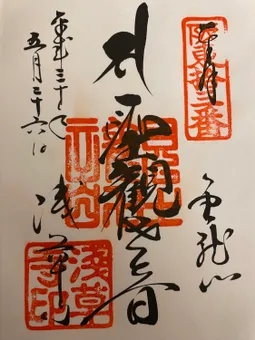 奉拝
坂東拾三番
金龍山
聖觀世音
浅草寺
浅草寺印
平成三十年
五月二十六日